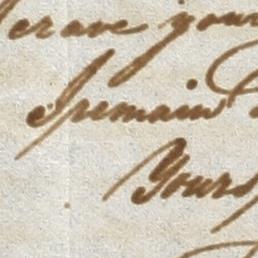 crave your
I remain
Yours